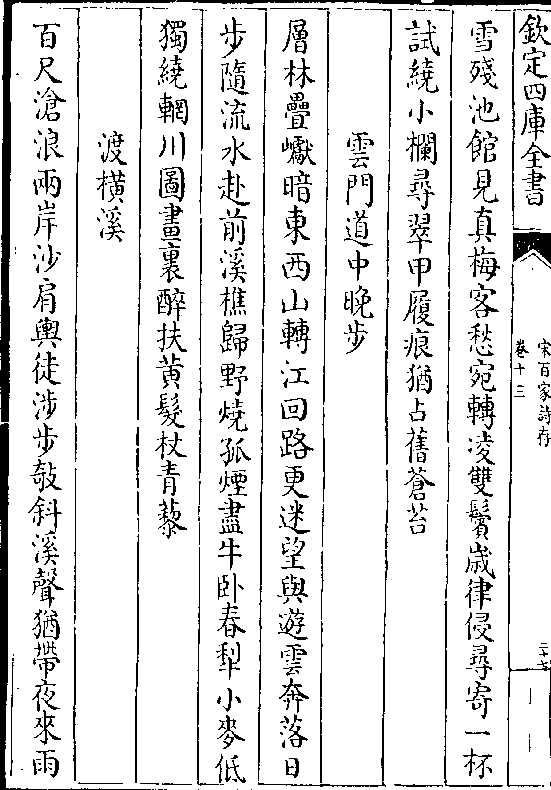 欽定四庫全書
宋百家詩存
卷十三
三十七
雪殘池館見真梅客愁宛轉凌雙鬢歲律侵尋寄一杯
試繞小欄尋翠甲履痕猶占舊蒼苔
雲門道中晚步
層林疊巘暗東西山轉江回路更迷望與遊雲奔落日
步隨流水赴前溪樵歸野燒孤煙盡牛卧春犁小麥低
獨繞輞川圖畫裏醉扶黄髮杖青藜
渡橫溪
百尺滄浪兩岸沙肩輿徒涉步欹斜溪聲猶帶夜來雨